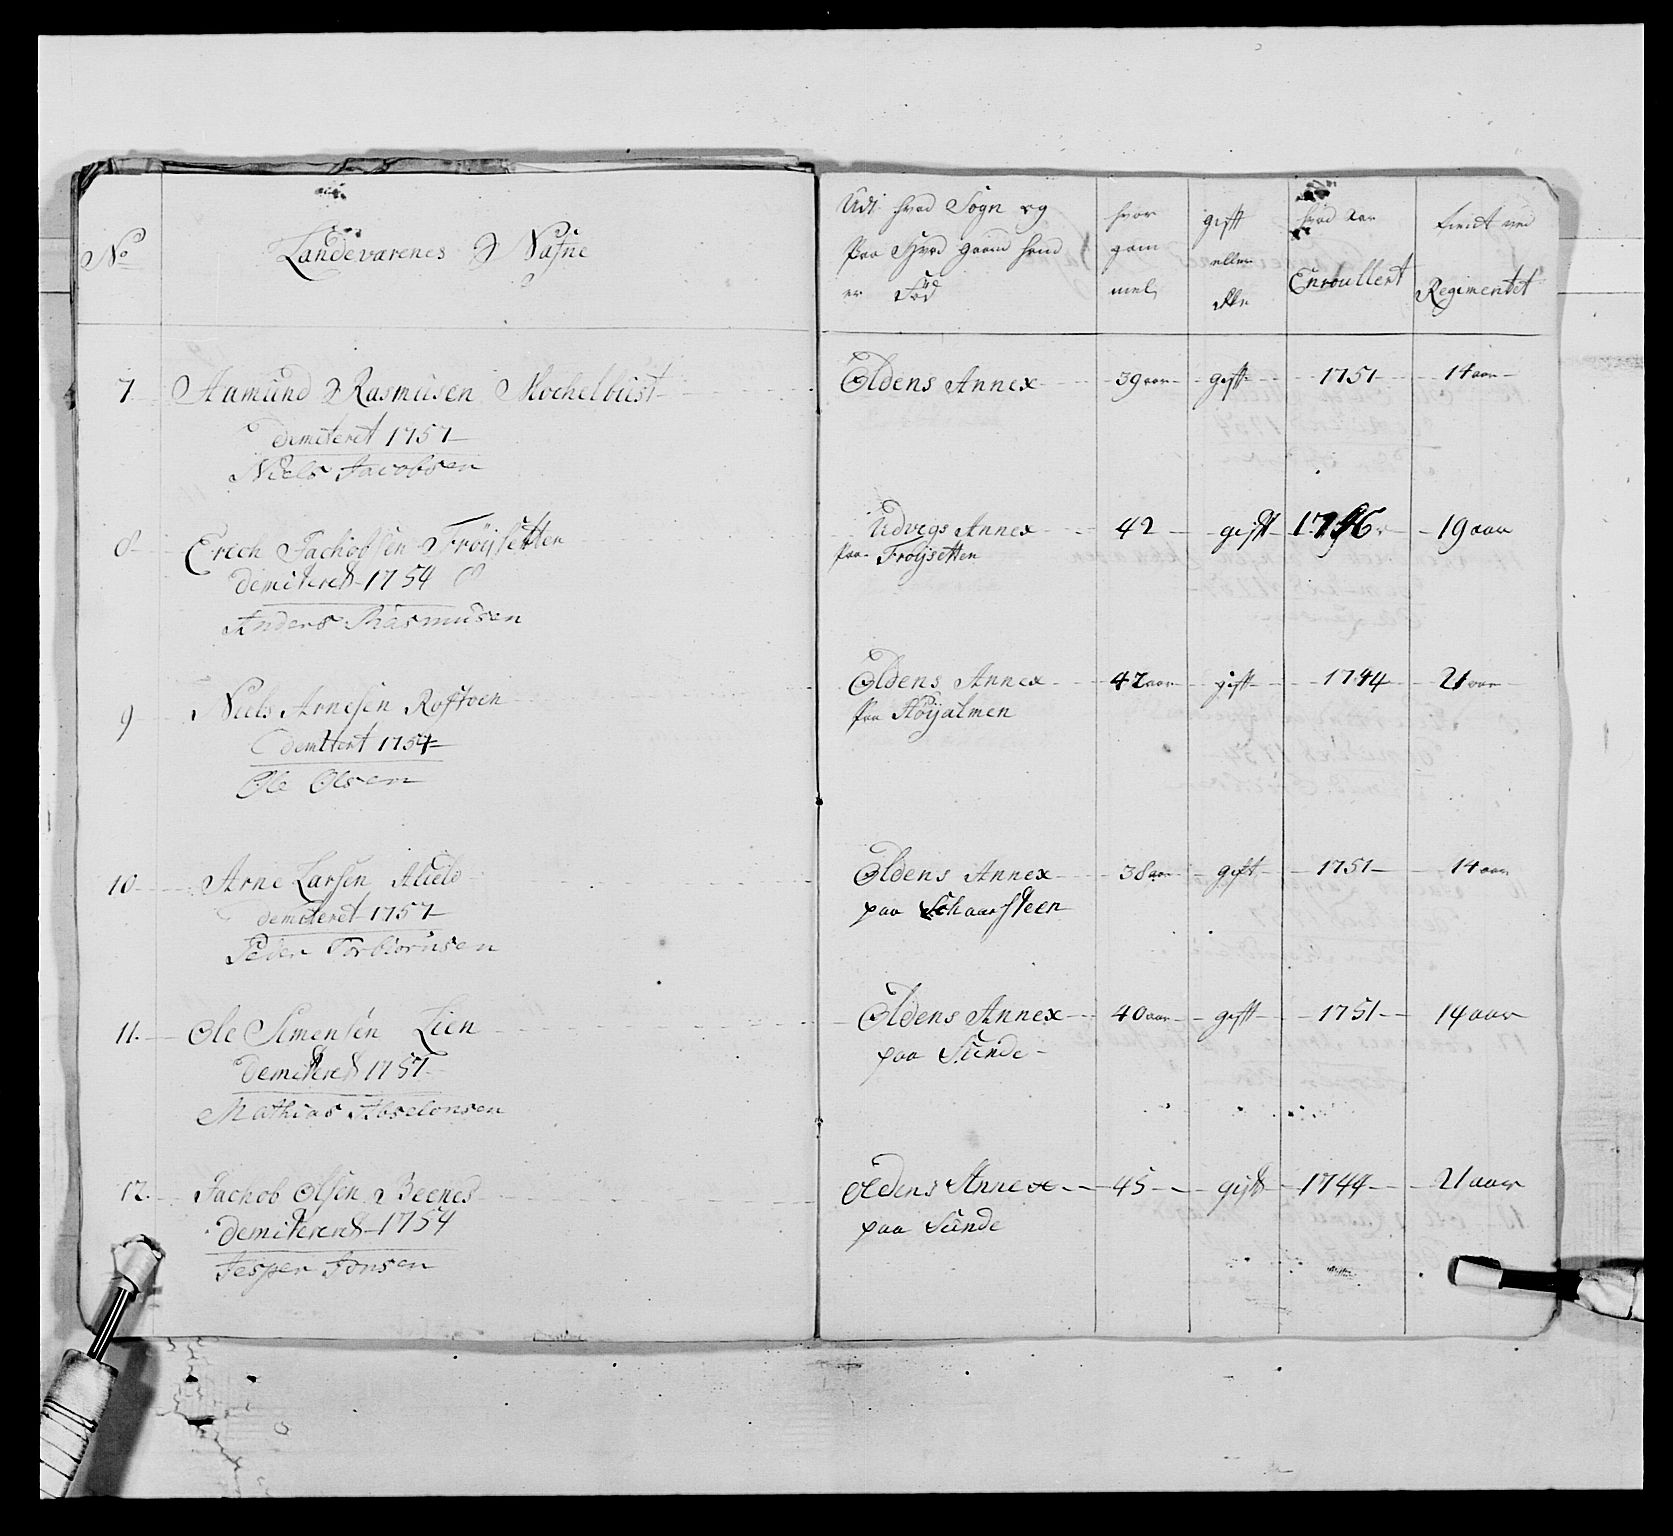 No Landevarenes Nafne
Udi hvad Sogn og
Paa Hvad gaard hand
er Föd
hvor
gam
mel
gift
eller
ikke
hvad aar
Enroullert
tient ved
Regimentet
7 Aamund Rasmusen Mochelbust Oldens Annex 39 aar gift 1751 14 aar
demiteret 1757
Niels Jacobsen
8 Erich Jachobsen Fröysetter Udvigs Annex 42 gift 1746 19 aar
paa Fröysetten
demiteret 1754
Anders Rasmusen
9 Niels Arnesen Rostoen Oldens Annex 47 aar gift 1744 21 aar
paa Höyalmen
demitert 1754
Ole Olsen
10 Arne Larsen Oldens Annex 38 aar gift 1751 14 aar
paa Schaarsteen
demiteret 1757
Peder Torbiörnsen
11. Ole Simensen Lien Oldens Annex 40 aar gift 1751 14 aar
paa Sunde
demiteret 1757
Mathias Abselonsen
12. Jachob Olsen Beenes Oldens Annex 45 gift 1744 21 aar
paa Sunde
demitereret 1754
Jesper Jonsen